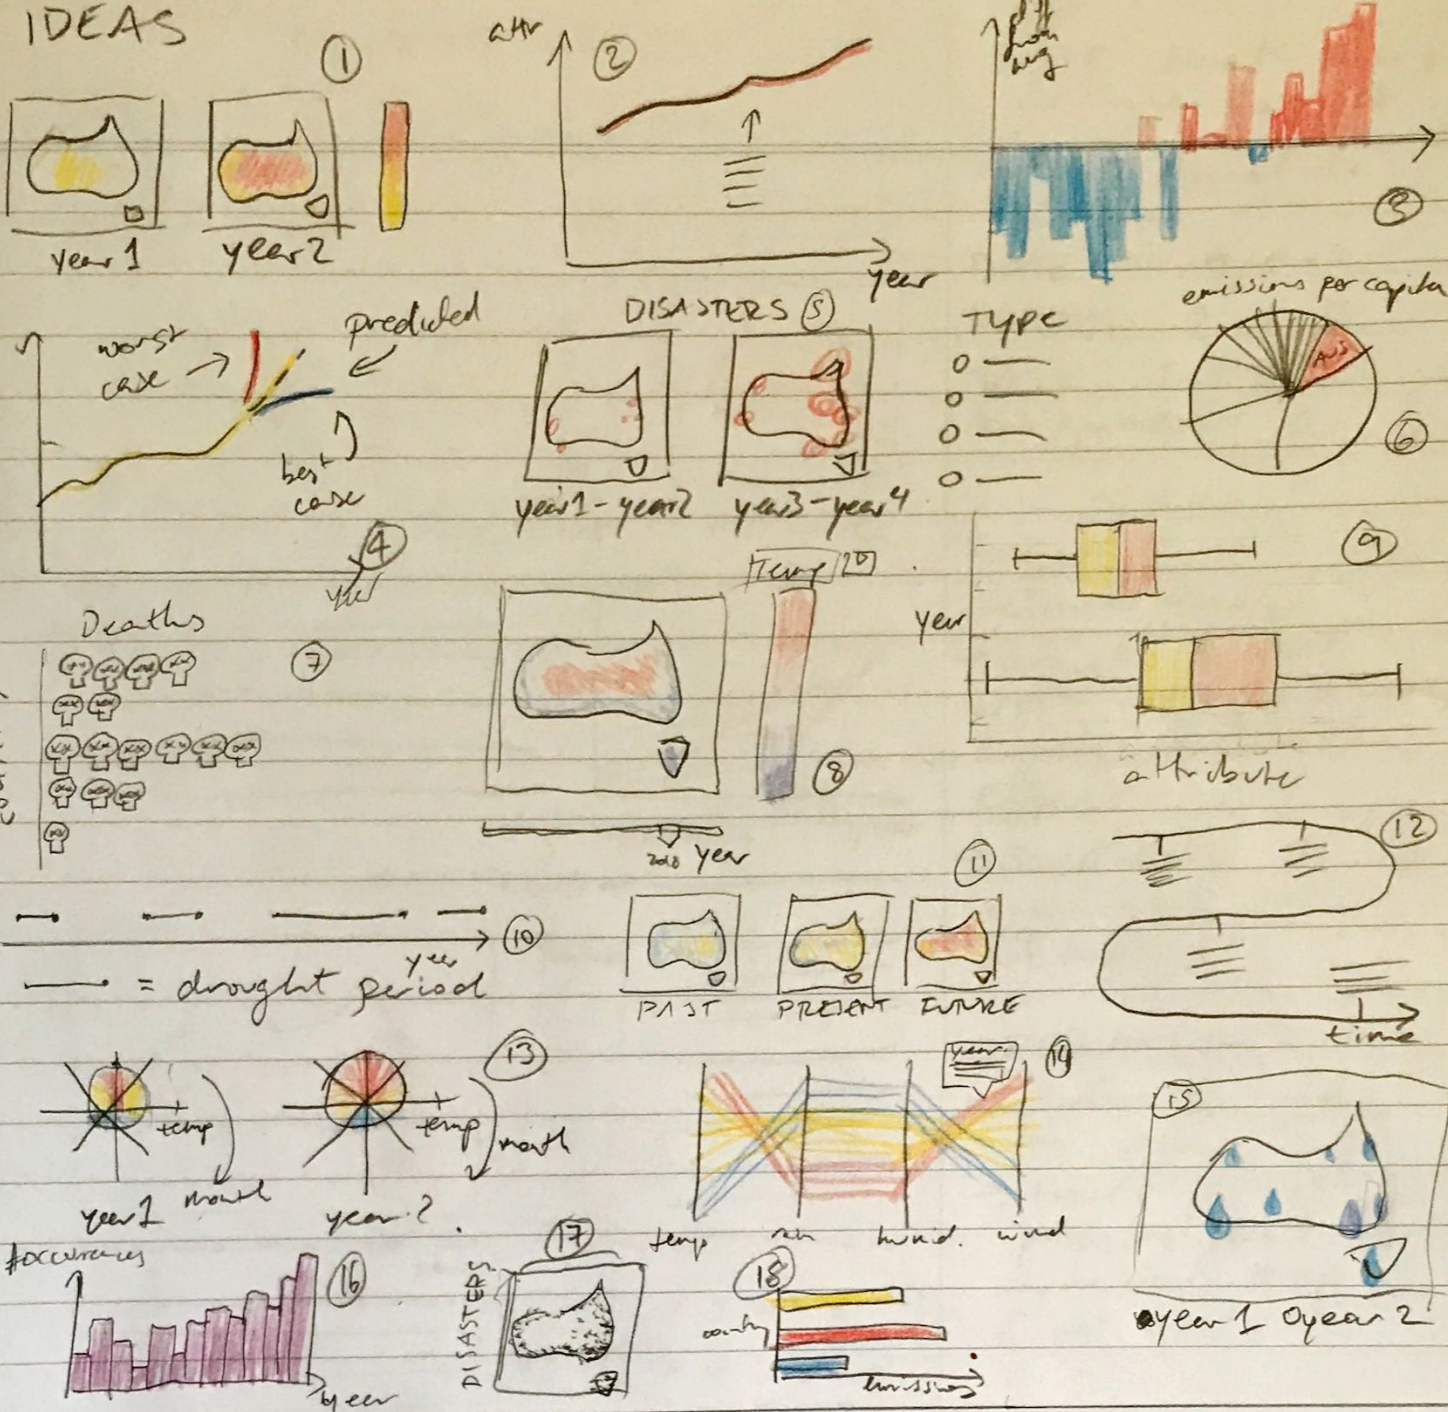 IDEAS
1
year 1
year 2
attr
2
year
diff
from
avg
3
worst
case
predicted
best
case
4
year
DISASTERS 5
year1-year2
year3-year4
TYPE
emissions per capita
AUS
6
Deaths
7
Temp
8
2018 year
9
year
attribute
10
year
= drought period
11
PAST
PRESENT
FUTURE
12
time
13
temp
month
year 1
temp
month
year 2
14
year
temp
rain
humid.
wind
15
year 1 year 2
#occurences
16
year
17
DISASTERS
18
country
emissions